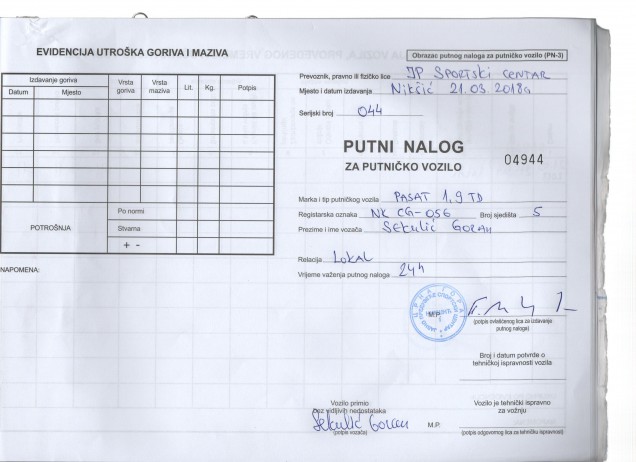 EVIDENCIJA UTROŠKA GORIVA I MAZIVA
Izdavanje goriva
Datum Mjesto
Vrsta goriva
Vrsta maziva
Lit.
Kg.
Potpis
POTROŠNJA
Po normi
Stvarna
+ -
NAPOMENA:
Obrazac putnog naloga za putničko vozilo (PN-3)
Prevoznik, pravno ili fizičko lice JP SPORTSKI CENTAR
Mjesto i datum izdavanja Nikšić 21.03.2018g
Serijski broj 044
PUTNI NALOG
ZA PUTNIČKO VOZILO
04944
Marka i tip putničkog vozila PASAT 1,9 TD
Registarska oznaka NK CG-056 Broj sjedišta 5
Prezime i ime vozača SEKULIĆ GORAN
Relacija LOKAL
Vrijeme važenja putnog naloga 24h
M.P.
(potpis ovlašćenog lica za izdavanje
putnog naloga)
Broj i datum potvrde o
tehničkoj ispravnosti vozila
Vozilo primio
bez vidljivih nedostataka
Sekulić Goran
(potpis vozača)
M.P.
Vozilo je tehnički ispravno
za vožnju
(potpis odgovornog lica za tehničku ispravnost)